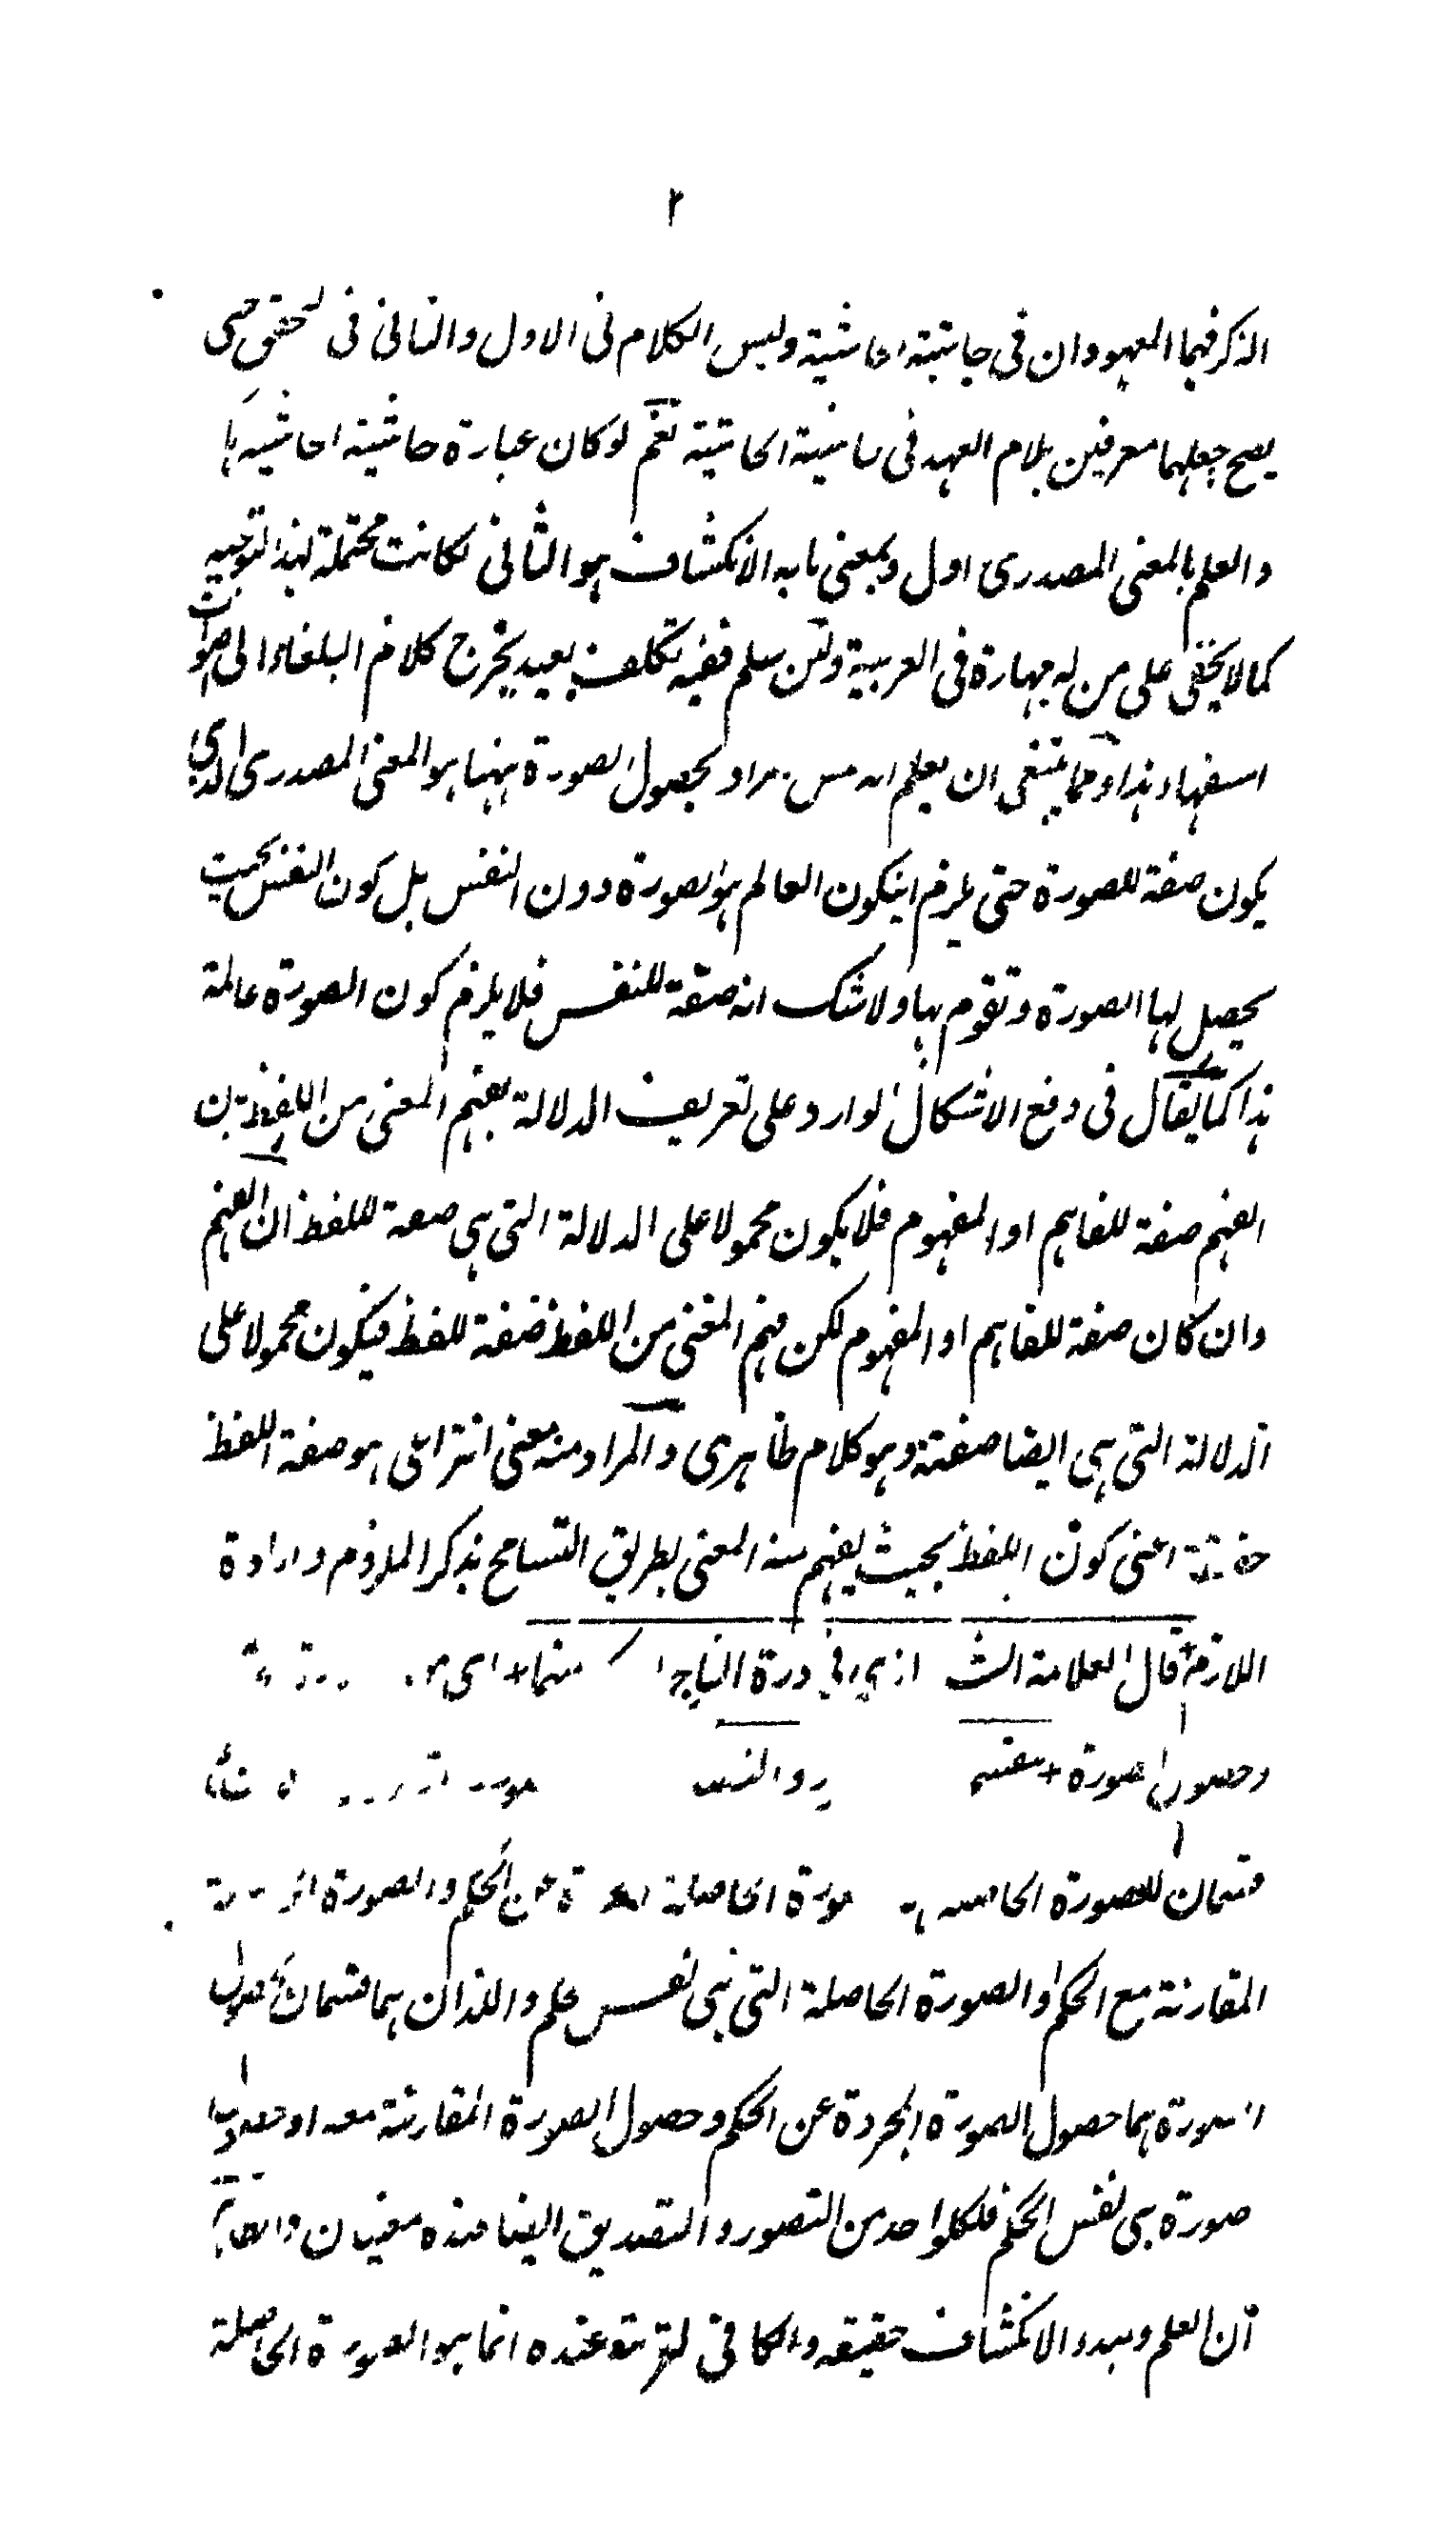 ٢
الذكر فهما المعهودان في حاشية الحاشية وليس الكلام في الاول والثاني في التحقق حتى
يصح جعلهما معرفين بلام العهد في حاشية الحاشية نعم لو كان عبارة حاشية الحاشية ها
والعلم بالمعنى المصدري اول وبمعنى ما به الانكشاف هو الثاني لكانت محتملة لهذا التوجيه
كما لا يخفى على من له مهارة في العربية ولئن سلم ففيه تكلف بعيد يخرج كلام البلغاء الى اصوات
السفهاء هذا ومما ينبغي ان يعلم انه ليس مراد بحصول الصورة ههنا هو المعنى المصدري الذي
يكون صفة للصورة حتى يلزم ان يكون العالم هو الصورة دون النفس بل كون النفس بحيث
يحصل لها الصورة وتقوم بها ولا شك انه صفة للنفس فلا يلزم كون الصورة عالمة
هذا كما يقال في دفع الاشكال الوارد على تعريف الدلالة بفهم المعنى من اللفظ بان
الفهم صفة للفاهم او المفهوم فلا يكون محمولا على الدلالة التي هي صفة للفظ ان الفهم
وان كان صفة للفاهم او المفهوم لكن فهم المعنى من اللفظ صفة للفظ فيكون محمولا على
الدلالة التي هي ايضا صفته وهو كلام ظاهري والمراد منه معنى انتزاعي هو صفة اللفظ
حقيقة اعني كون اللفظ بحيث يفهم منه المعنى بطريق التسامح بذكر الملزوم وارادة
اللازم قال العلامة الشيرازي في درة التاج
وحصول صورة
قسمان للصورة الحاصلة الصورة الحاصلة المجردة عن الحكم والصورة
المقارنة مع الحكم او الصورة الحاصلة التي هي نفس علم واللذان هما قسمان لحصول
الصورة هما حصول الصورة المجردة عن الحكم وحصول الصورة المقارنة معه او حصول
صورة هي نفس الحكم فلكل واحد من التصور والتصديق ايضا عنده معنيان
ان العلم ومبدء الانكشاف حقيقة والكافي عنده انما هو الصورة الحاصلة